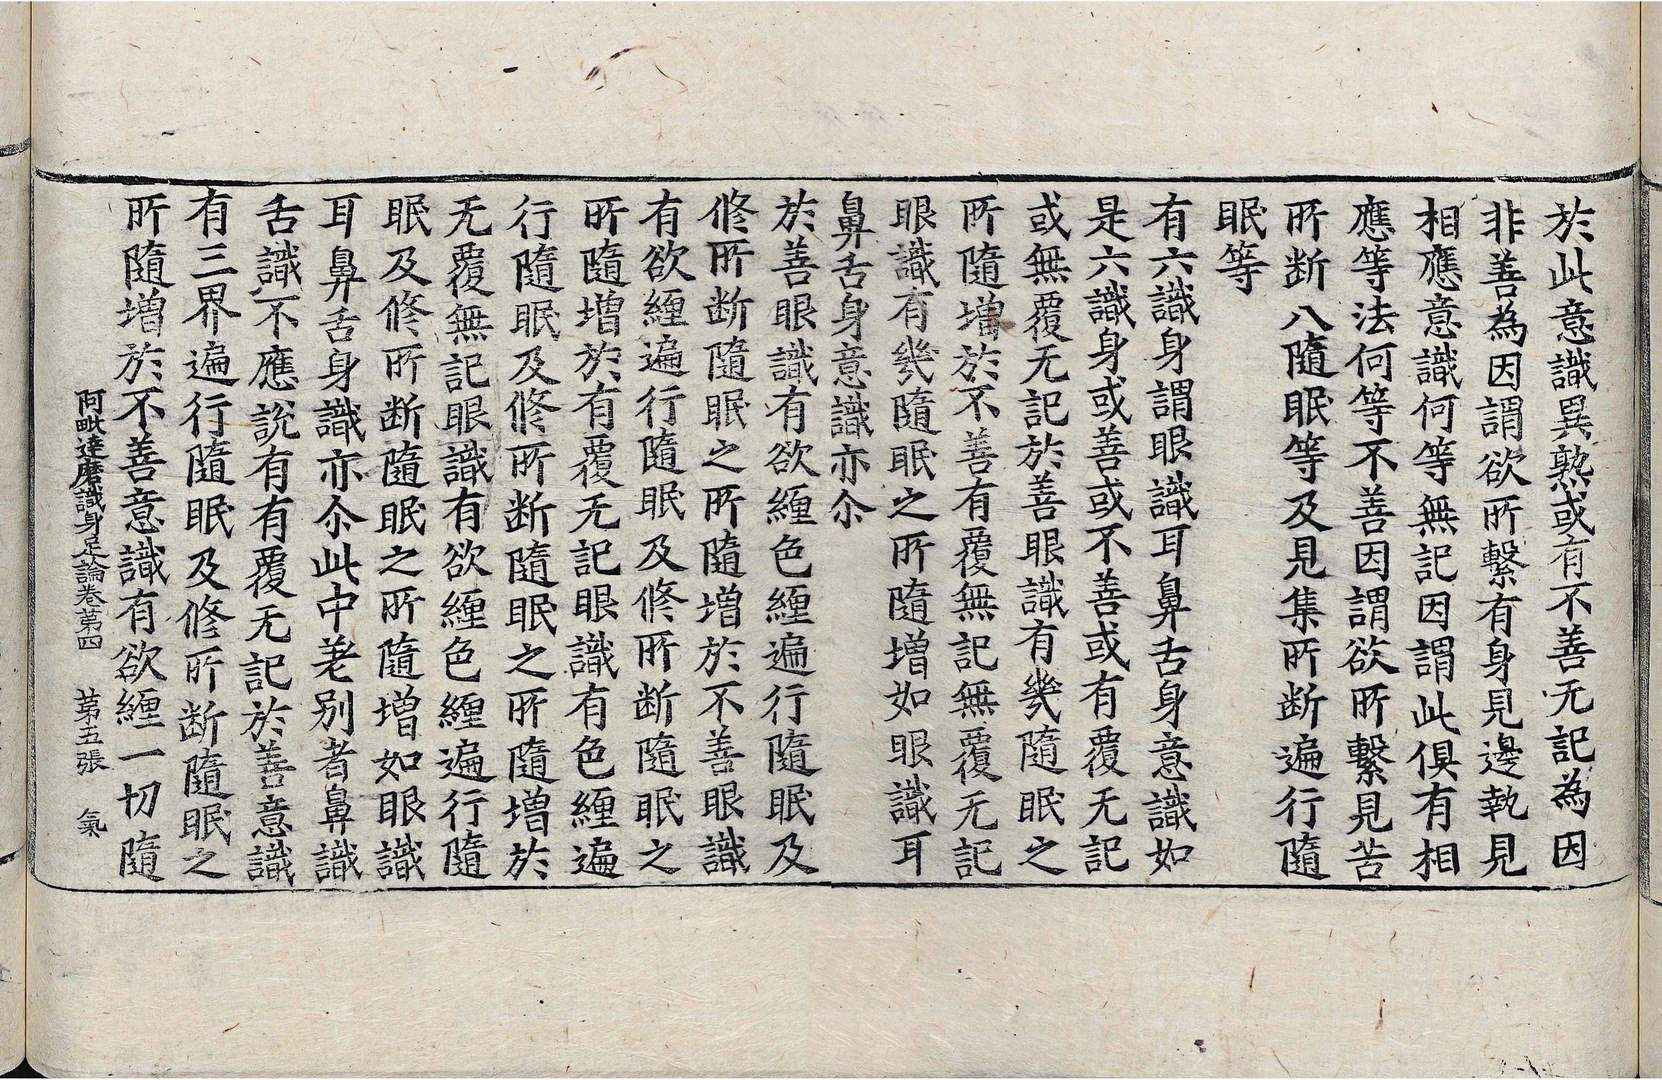 於此意識異熟或有不善无記為因
非善為因謂欲所繫有身見邊執見
相應意識何等無記因謂此俱有相
應等法何等不善因謂欲所繫見苦
所断八隨眠等及見集所断遍行隨
眠等
有六識身謂眼識耳鼻舌身意識如
是六識身或善或不善或有覆无記
或無覆无記於善眼識有幾隨眠之
所隨增於不善有覆無記無覆无記
眼識有幾隨眠之所隨增如眼識耳
鼻舌身意識亦尒
於善眼識有欲纏色纏遍行隨眠及
修所断隨眠之所隨增於不善眼識
有欲纏遍行隨眠及修所断隨眠之
所隨增於有覆无記眼識有色纏遍
行隨眠及修所断隨眠之所隨增於
无覆無記眼識有欲纏色纏遍行隨
眠及修所断隨眠之所隨增如眼識
耳鼻舌身識亦尒此中差別者鼻識
舌識不應說有有覆无記於善意識
有三界遍行隨眠及修所断隨眠之
所隨增於不善意識有欲纏一切隨
阿毗達磨識身足論卷第四　第五張　氣